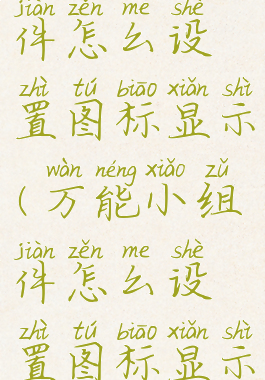 jiàn zěn me shè
件怎么设
zhì tú biāo xiǎn shì
置图标显示
wàn néng xiǎo zǔ
（万能小组
jiàn zěn me shè
件怎么设
zhì tú biāo xiǎn shì
置图标显示